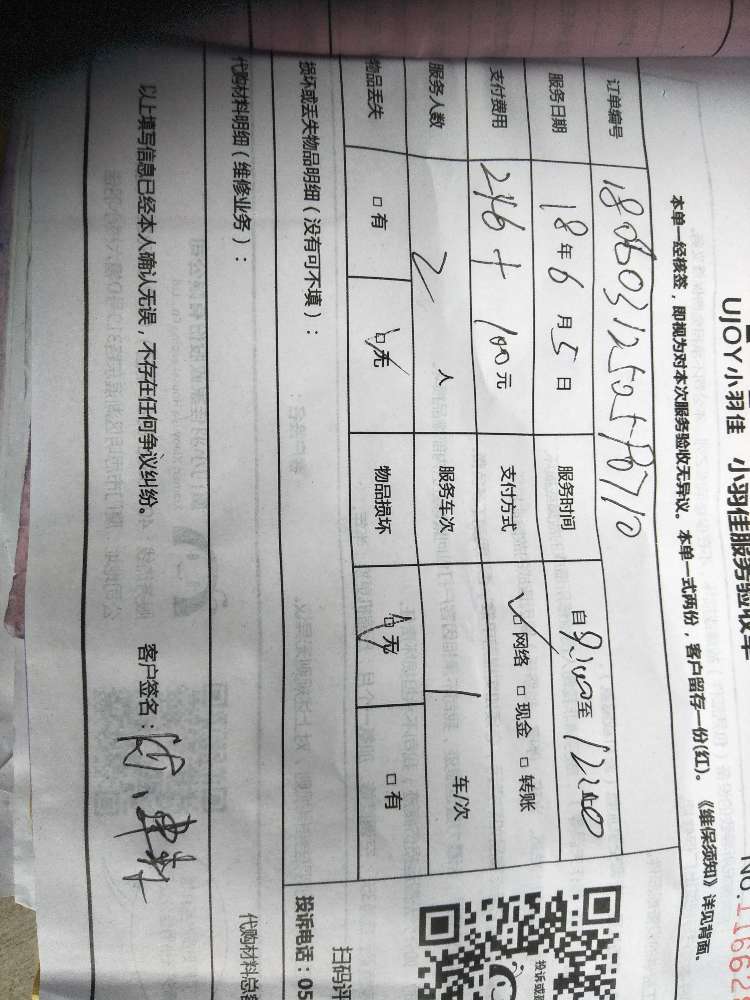 UJOY小羽佳 小羽佳服务验收单
No.11662
本单一经核签，即视为对本次服务验收无异议。本单一式两份，客户留存一份(红)。《维保须知》详见背面。
订单编号
服务日期 18年6月5日 服务时间 自9:00至12:00
支付费用 246+100元 支付方式 ☑网络 □现金 □转账
服务人数 2人 服务车次 1车/次
物品丢失 □有 ☑无 物品损坏 ☑无 □有
损坏或丢失物品明细（没有可不填）：
代购材料明细（维修业务）：
代购材料总
以上填写信息已经本人确认无误，不存在任何争议纠纷。 客户签名：
投诉或
扫码评
投诉电话：05